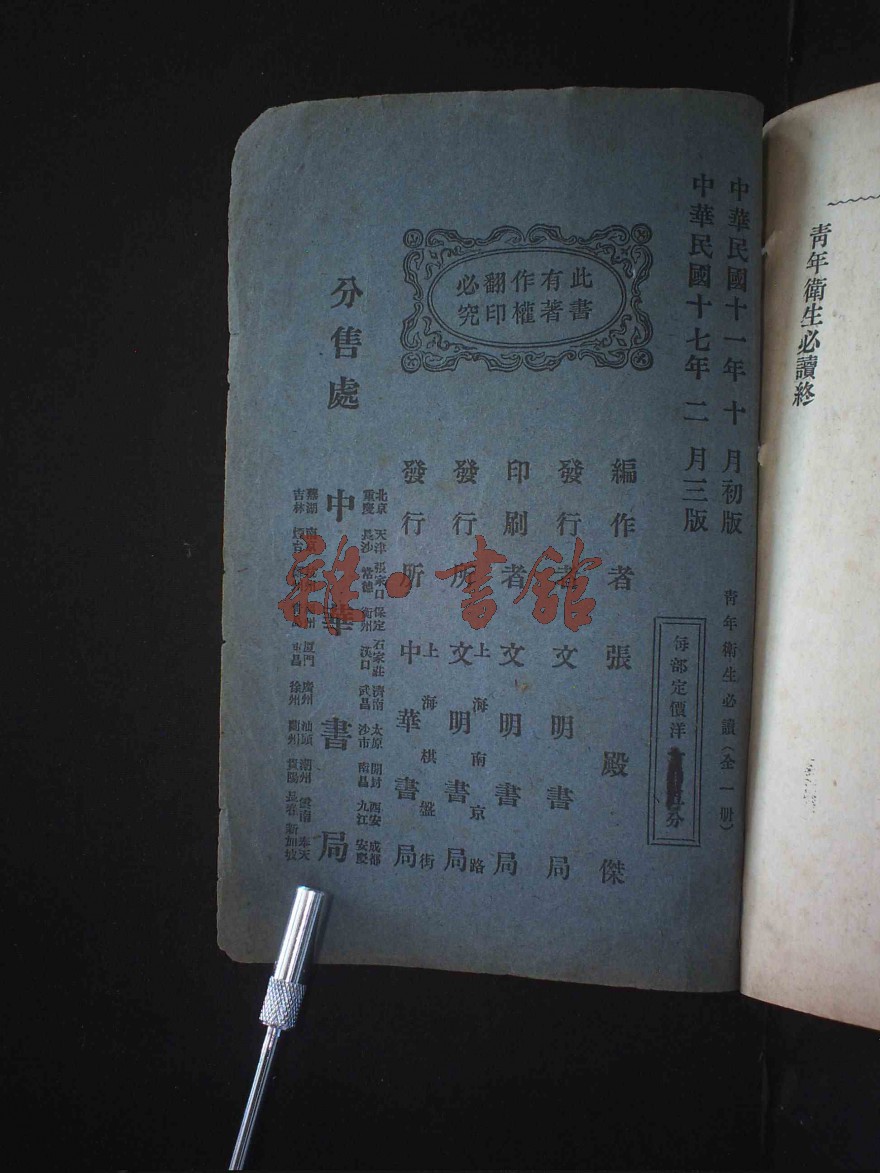 青年衛生必讀終
中華民國十一年十月初版
中華民國十七年二月三版
青年衛生必讀（全一册）
每部定價洋
分
編作者 張殿傑
發行者 文明書局
印刷者 文明書局
發行所 上海南京路 文明書局
發行所 上海棋盤街 中華書局
此書
有著
作權
翻印
必究
分售處
北京 天津 張家口 保定 石家莊 濟南 太原 開封 西安 成都
重慶 長沙 常德 衡州 漢口 武昌 沙市 南昌 九江 安慶
中華書局
蕪湖 南京 廈門 廣州 汕頭 潮州 雲南 奉天
吉林 煙台 徐州 蘭州 貴陽 長春 新加坡
雜·書館